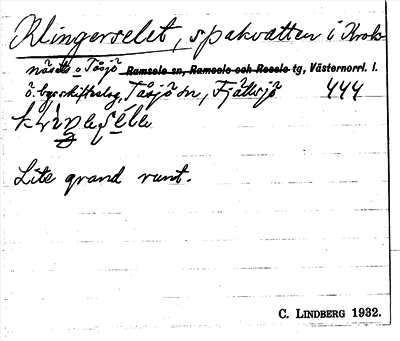 Klingerselet, spakvatten i Krok-
nosätts o Tåsjö Ramsele sn, Ramsele och Resele tg, Västernorrl. l.
ö. byaskifteslag, Tåsjö sn, Fjällsjö 444
Lite grand runt.
C. LINDBERG 1932.